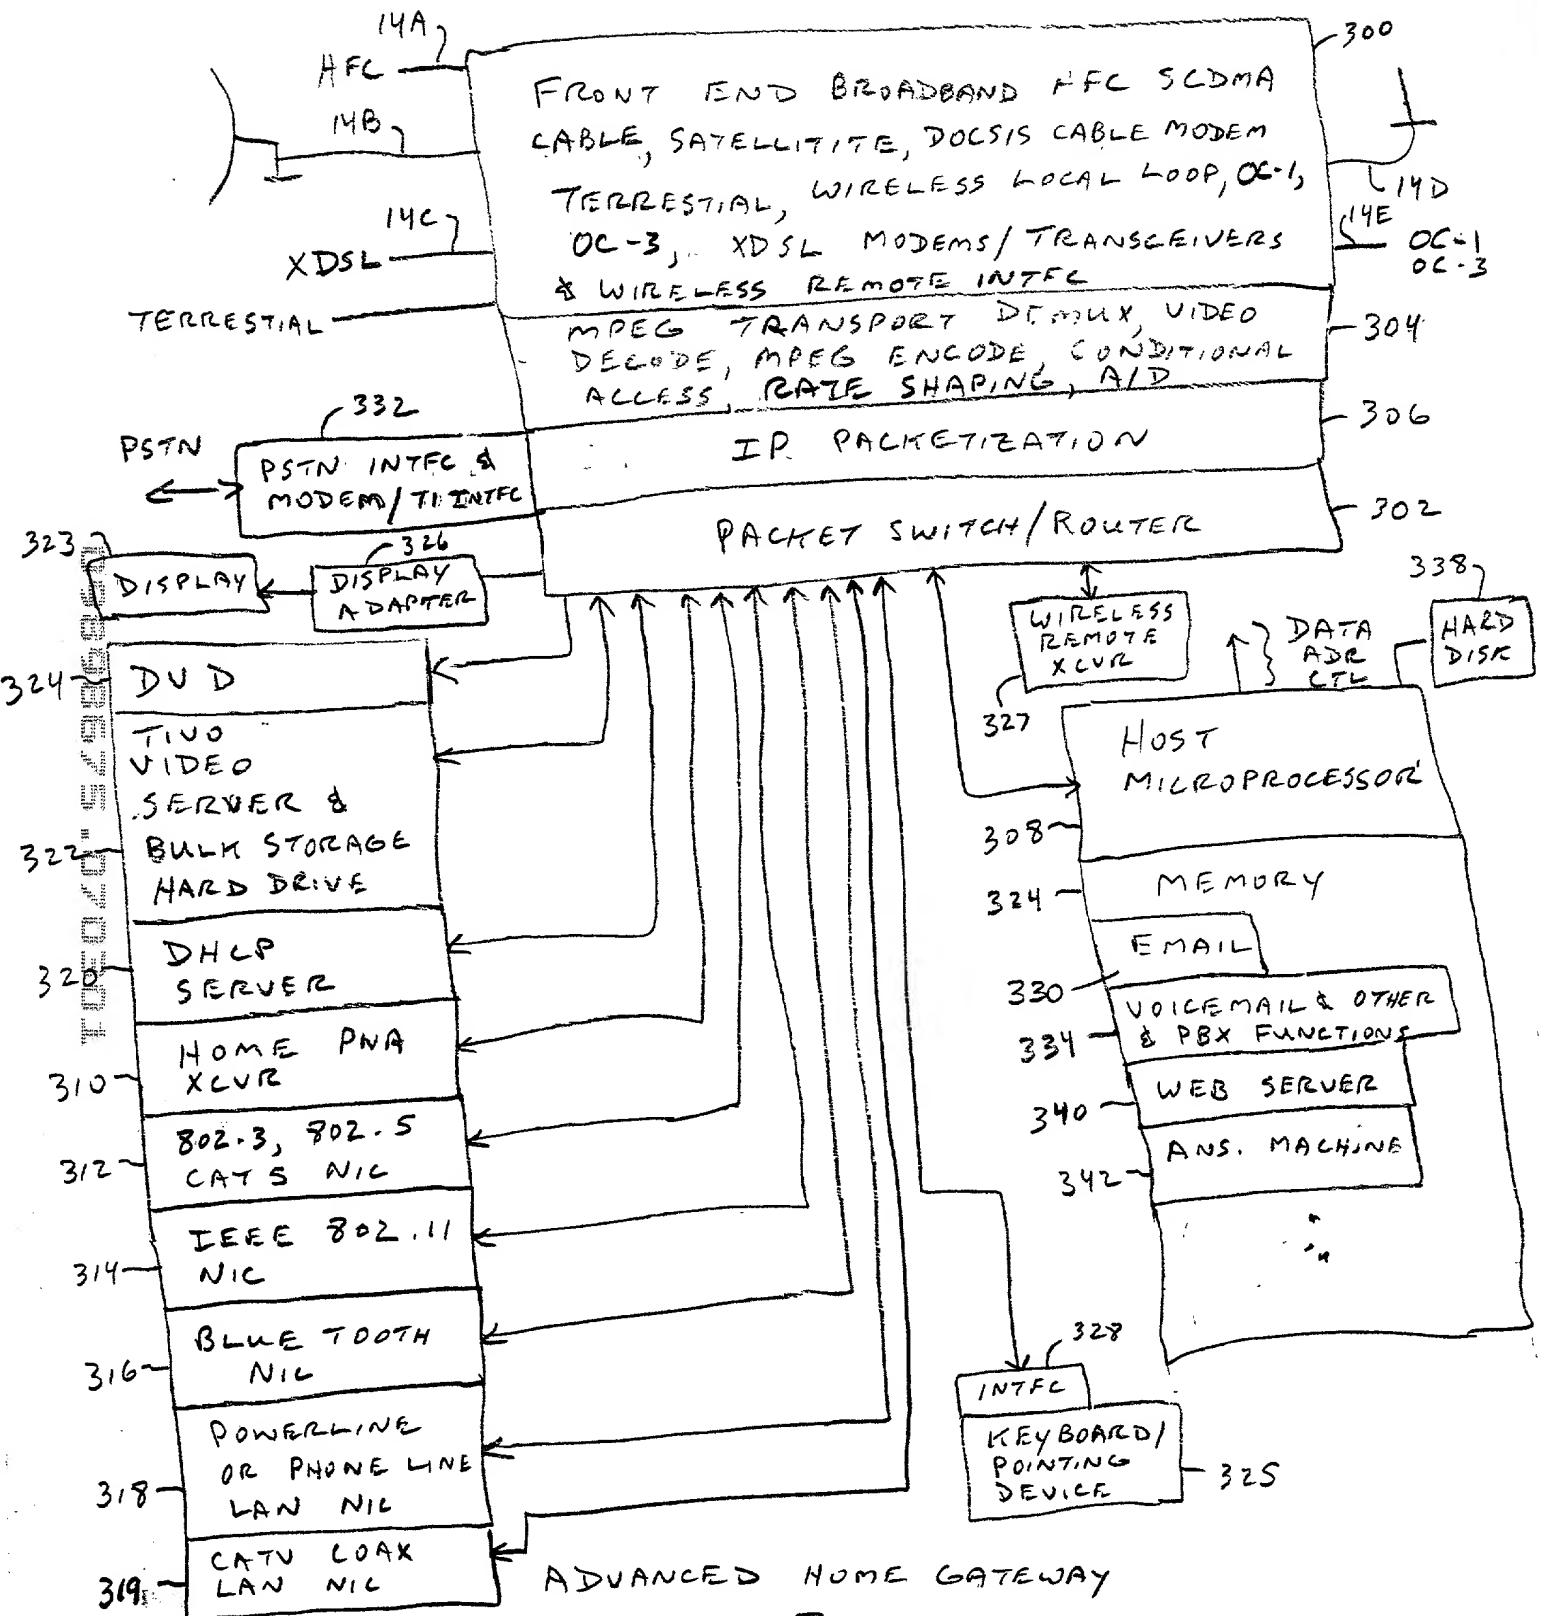 14A
HFC
300
FRONT END BROADBAND HFC SCDMA
CABLE, SATELLITITE, DOCSIS CABLE MODEM
TERRESTIAL, WIRELESS LOCAL LOOP, OC-1,
OC-3, XDSL MODEMS/TRANSCEIVERS
& WIRELESS REMOTE INTFC
14B
14C
XDSL
TERRESTIAL
14D
14E
OC-1
OC-3
MPEG TRANSPORT DEMUX, VIDEO
DECODE, MPEG ENCODE, CONDITIONAL
ACCESS, RATE SHAPING, A/D
304
332
PSTN
PSTN INTFC &
MODEM/T1 INTFC
IP PACKETIZATION
306
PACKET SWITCH/ROUTER
302
323
DISPLAY
326
DISPLAY
ADAPTER
WIRELESS
REMOTE
XCVR
327
DATA
ADR
CTL
338
HARD
DISK
324
DVD
322
TIVO
VIDEO
SERVER &
BULK STORAGE
HARD DRIVE
320
DHCP
SERVER
310
HOME PNA
XCVR
312
802.3, 802.5
CAT 5 NIC
314
IEEE 802.11
NIC
316
BLUE TOOTH
NIC
318
POWERLINE
OR PHONE LINE
LAN NIC
319
CATV COAX
LAN NIC
HOST
MICROPROCESSOR
308
MEMORY
324
EMAIL
330
VOICEMAIL & OTHER
& PBX FUNCTIONS
334
WEB SERVER
340
ANS. MACHINE
342
328
INTFC
KEYBOARD/
POINTING
DEVICE
325
ADVANCED HOME GATEWAY